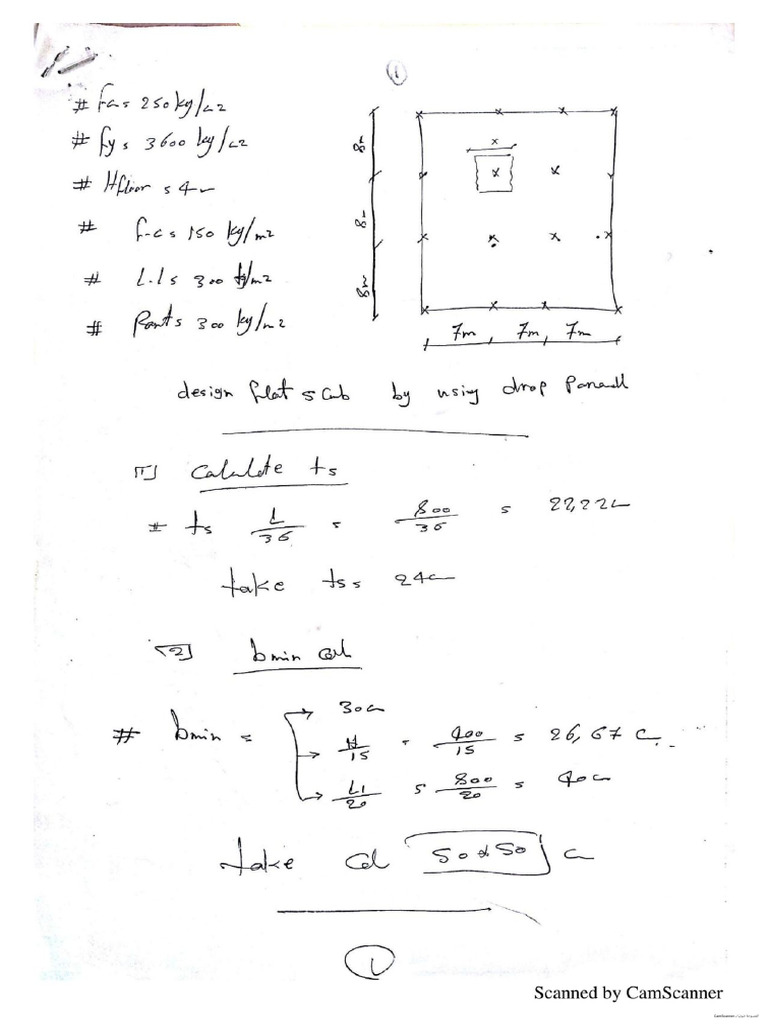 ①
# Fcu = 250 kg/c2
# fy = 3600 kg/c2
# Hfloor = 4m
# f.c = 150 kg/m2
# L.L = 300 k/m2
# Part = 300 kg/m2
8m
8m
8m
7m 7m 7m
design flat slab by using drop Panell
[1] Calculate ts
# ts L/36 = 800/36 = 22,22 c
take ts = 24 c
[2] bmin col
# bmin =
30 c
H/15 = 400/15 = 26,67 c
L1/20 = 800/20 = 40 c
take col 50*50 c
①
Scanned by CamScanner